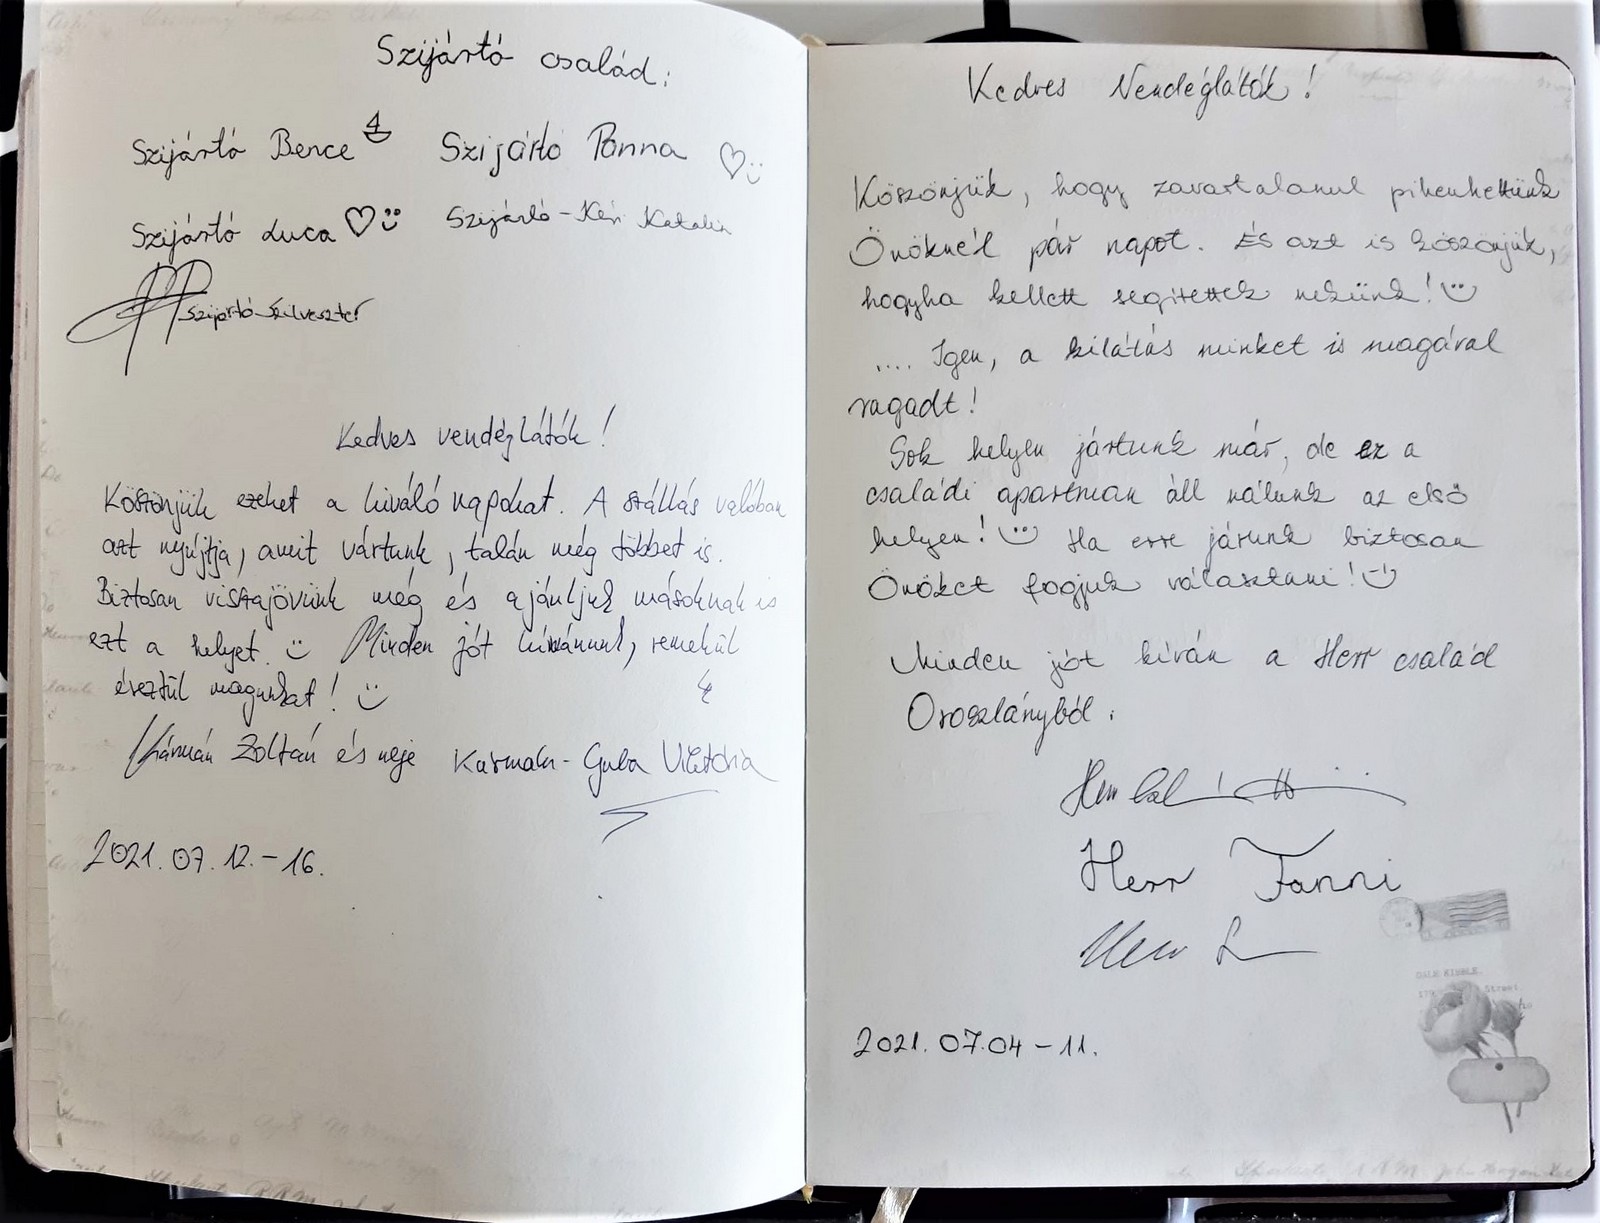 Szijártó család:
Szijártó Bence Szijártó Panna
Szijártó Luca Szijártó-Kéri Katalin
Szijártó Szilveszter
Kedves vendéglátók!
Köszönjük ezeket a kiváló napokat. A szállás valóban
azt nyújtja, amit vártunk, talán még többet is.
Biztosan visszajövünk még és ajánljuk másoknak is
ezt a helyet. Minden jót kívánunk, remekül
éreztük magunkat!
Kármán Zoltán és neje Kármán-Guba Viktória
2021.07.12.-16.
Kedves Vendéglátók!
Köszönjük, hogy zavartalanul pihenhettünk
Önöknél pár napot. És azt is köszönjük,
hogyha kellett segítettek nekünk!
.... Igen, a kilátás minket is magával
ragadt!
Sok helyen jártunk már, de ez a
családi apartman áll nálunk az első
helyen! Ha erre járunk biztosan
Önöket fogjuk választani!
Minden jót kíván a Herr család
Oroszlányból.
Herr
Herr Fanni
Herr
DALE KIBBLE.
Street.
2021.07.04-11.